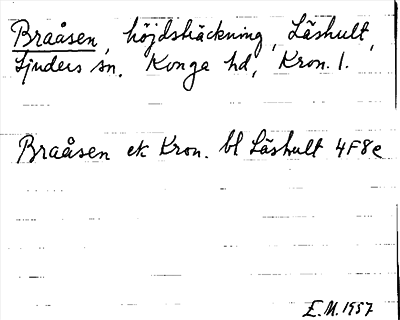 Braåsen, höjdsträckning, Låshult,
Ljuders sn. Konga hd, Kron. l.
Braåsen ek Kron. bl Låshult 4F8e
E.M. 1957